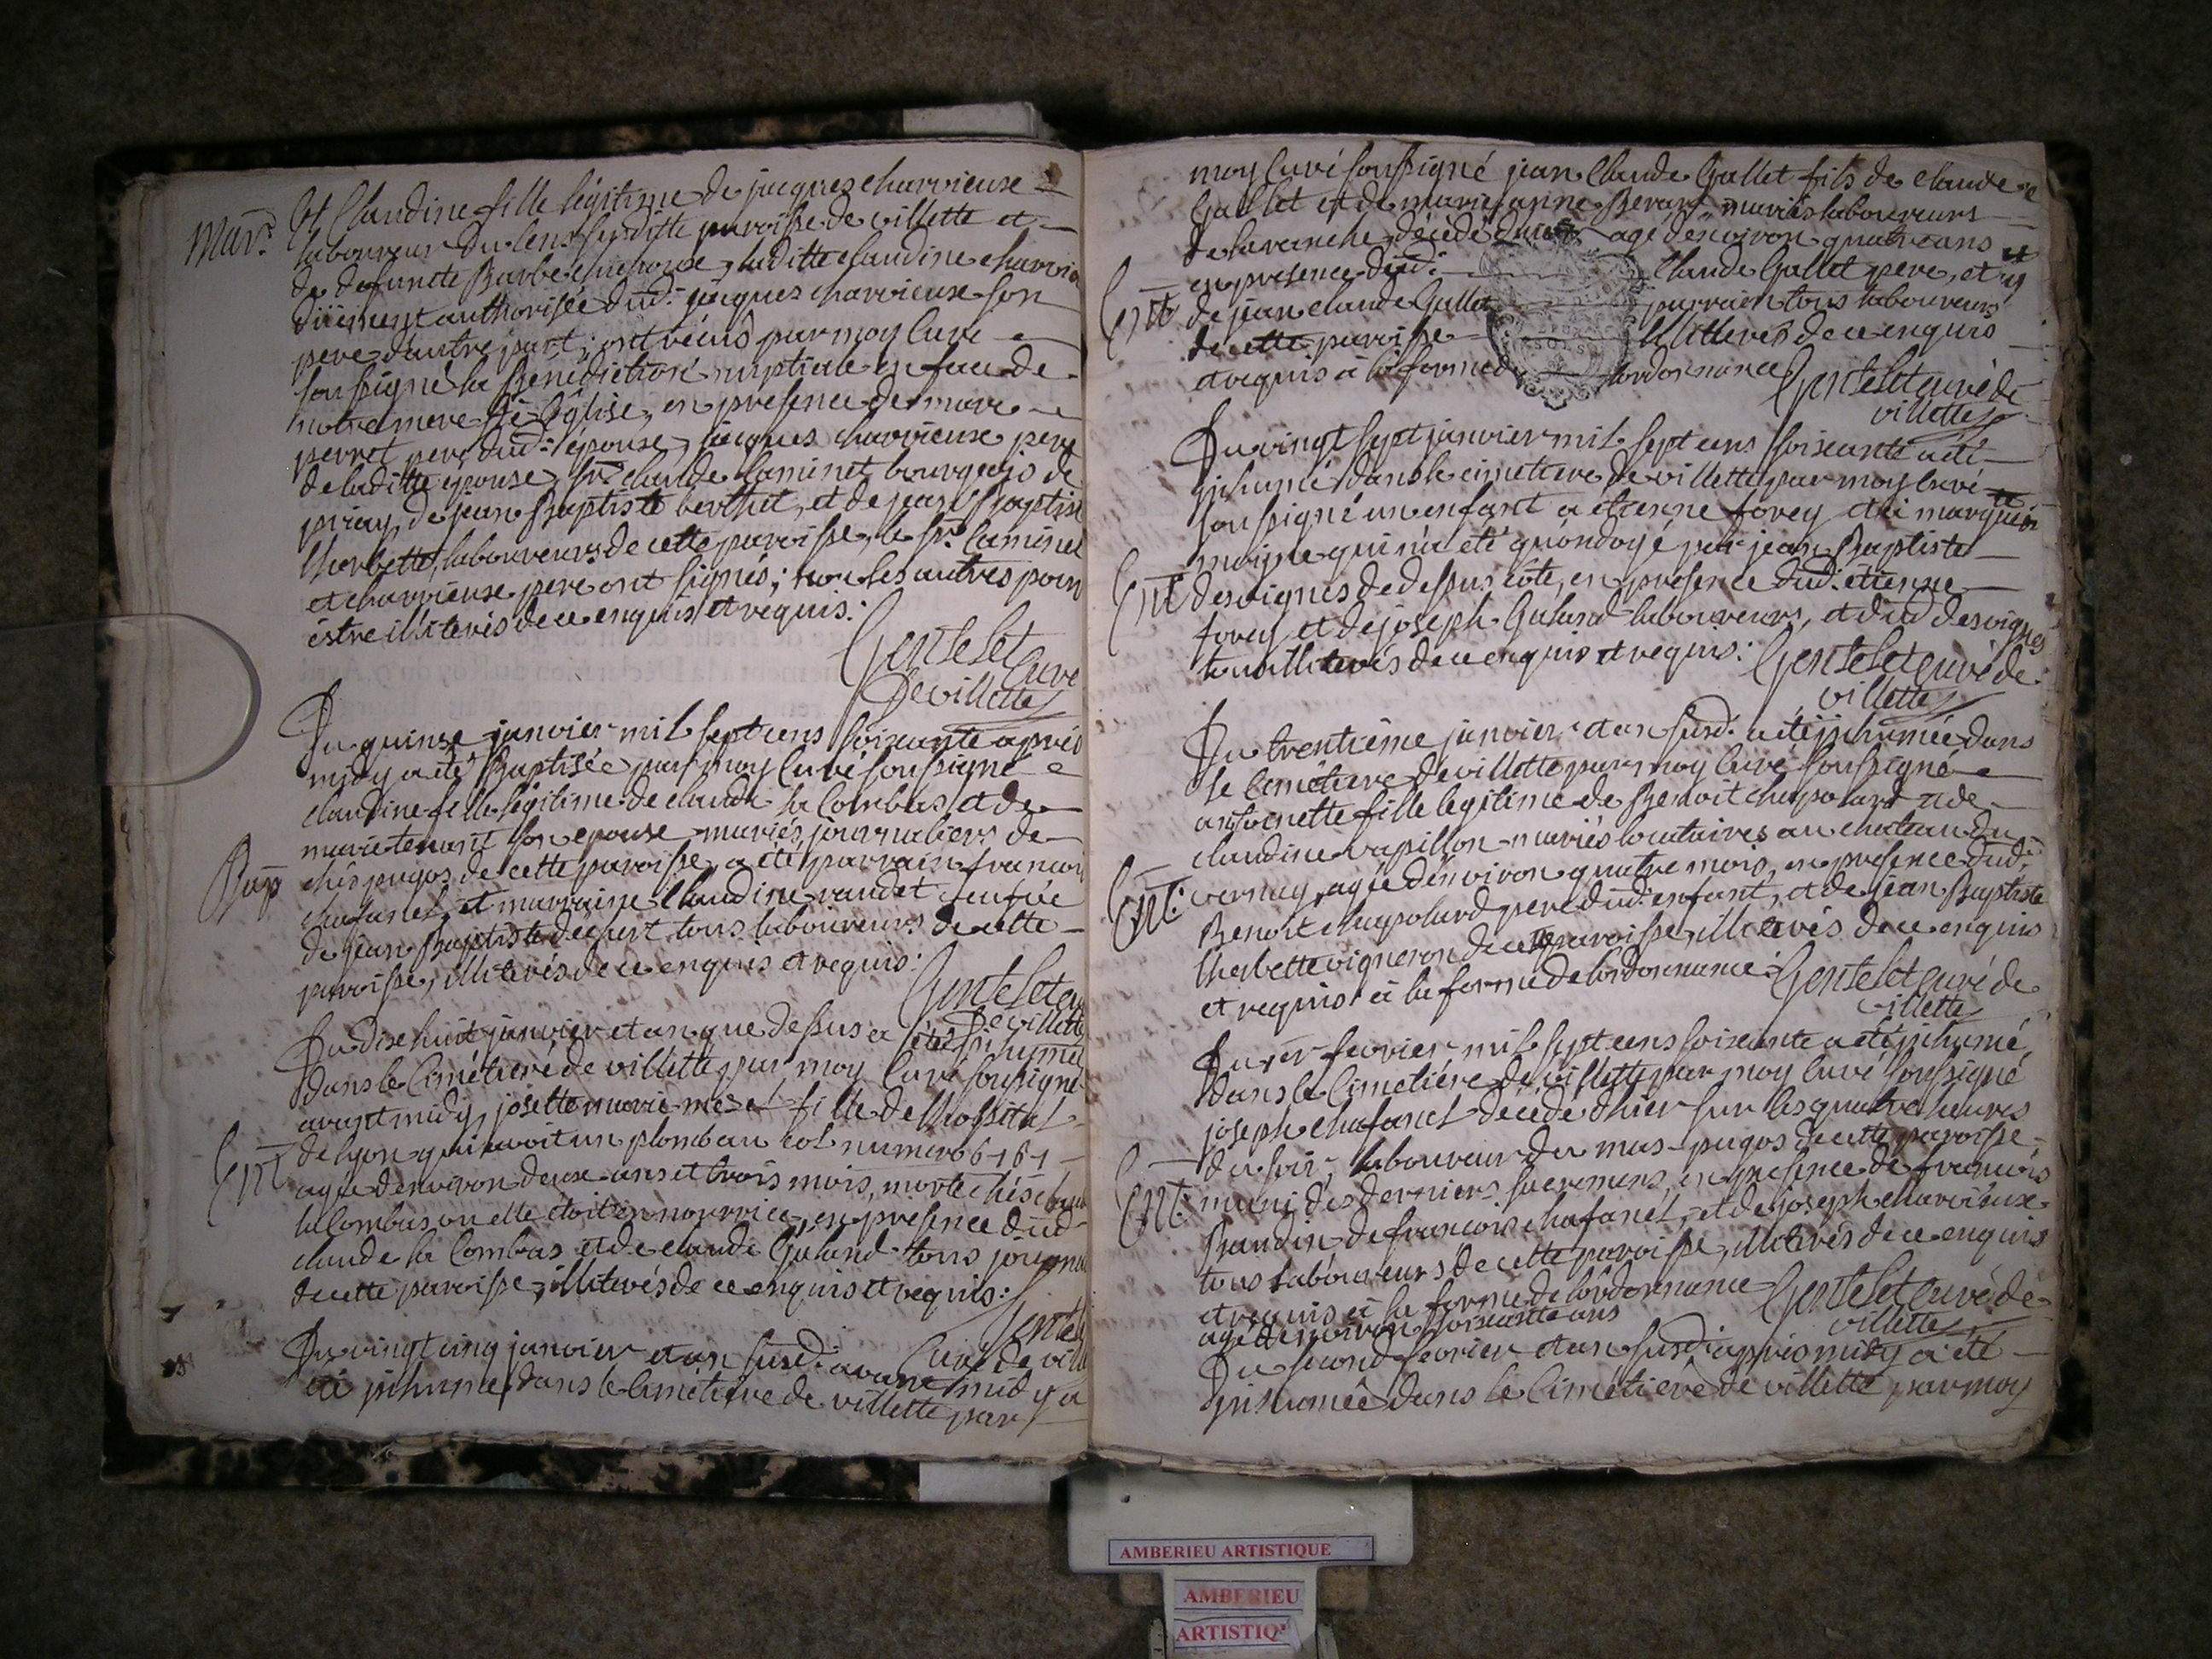 Mar.
Et Claudine fille légitime de jacques charvieuse
laboureur du lens susditte paroisse de villette et
de defuncte Barbe laditte claudine charvieu
düement authorisée dud: jacques charvieuse son
pere d'autre part; ont recus par moy Curé
soussigné la Benediction nuptiale en face de
notre mere Ste Eglise, en presence de marc
perret pere dud: épouse, jacques charvieuse pere
de laditte epouse, Sr. claude Caminet bourgeois de
priay, de jean Baptiste berthet, et de jean Baptiste
lherbette, laboureurs de cette paroisse, le Sr. Caminet
et charvieuse pere ont signés; non les autres pour
estre illiterés de ce enquis et requis:
Gentelet
Curé
De villette
Du quinse janvier mil sept cens soixante après
midy a été Baptisée par moy Curé soussigné
claudine fille légitime de claude la Combas et de
marie tenant son epouse mariés journaliers de
Bap
chés pugos de cette paroisse, a été parrain francois
chafanel, et marraine Claudine vaudet
de jean Baptiste tous laboureurs de cette
paroisse, illiterés de ce enquis et requis:
Gentelet cu
De villette
Du dixhuit janvier et an que dessus a été inhumée
dans le Cimétiere de villette par moy Curé soussigné
avant midy, josette marie fille de lhospital
de lyon qui avoit un plomb au col numero 6161
Ent
agée denviron deux ans et trois mois, morte chés claude
la Combas ou elle étoit en nourrice, en presence dud
claude la Combas et de claude Guland tous journa
de cette paroisse, illiterés de ce enquis et requis:
Gentele
Curé de vill
Du vingt cinq janvier et an susd: avant midy a
été inhumé dans le Cimétiere de villette par
moy Curé soussigné jean Claude Gallet fils de claude
Gallet et de marie anne Berard mariés laboureurs
de lavanche, décédé agé denviron quatre ans
en presence dud: Claude Gallet pere, et
Ent
de jean claude Gallet parrain tous laboureurs
de cette paroisse illiterés de ce enquis
et requis à la forme de lordonnance
Gentelet curé de
villette
Du vingt sept janvier mil sept cens soixante a été
inhumé dans le cimetiere de villette par moy Curé
soussigné un enfant a étienne forey et a marguerite
moigne qui n'a été quondoyé par jean Baptiste
Ent
desvignes de dessus côte, en presence dud: étienne
forey et de joseph Guland laboureurs, et dud desvignes
tous illiterés de ce enquis et requis:
Gentelet curé de
villette
Du trentième janvier et an susd: a été inhumée dans
le Cimétiere de villette par moy Curé soussigné
antoenette fille legitime de Benoit chapolard et de
claudine vapillon mariés locataires au chateau du
Ent:
vernay, agée denviron quatre mois, en presence dud:
Benoit chapolard pere dud: enfant, et de jean Baptiste
lherbette vigneron de cette paroisse, illiterés de ce enquis
et requis à la forme de lordonnance:
Gentelet curé de
villette
Du 1er fevrier mil sept cens soixante a été inhumé
dans le Cimetiére de villette par moy Curé soussigné
joseph chafanel décédé dhier sur les quatre heures
du soir, laboureur du mas pugos de cette paroisse
Ent:
muni des derniers sacremens, en presence de francois
Baudin de francois chafanel, et de joseph charvieuse
tous laboureurs de cette paroisse, illiterés de ce enquis
et requis à la forme de lordonnance
Gentelet curé de
villette
agé denviron soixante ans
Du second fevrier et an susd: après midy a été
inhumée dans le Cimetiere de villette par moy
AMBERIEU ARTISTIQUE
AMBERIEU
ARTISTIQ